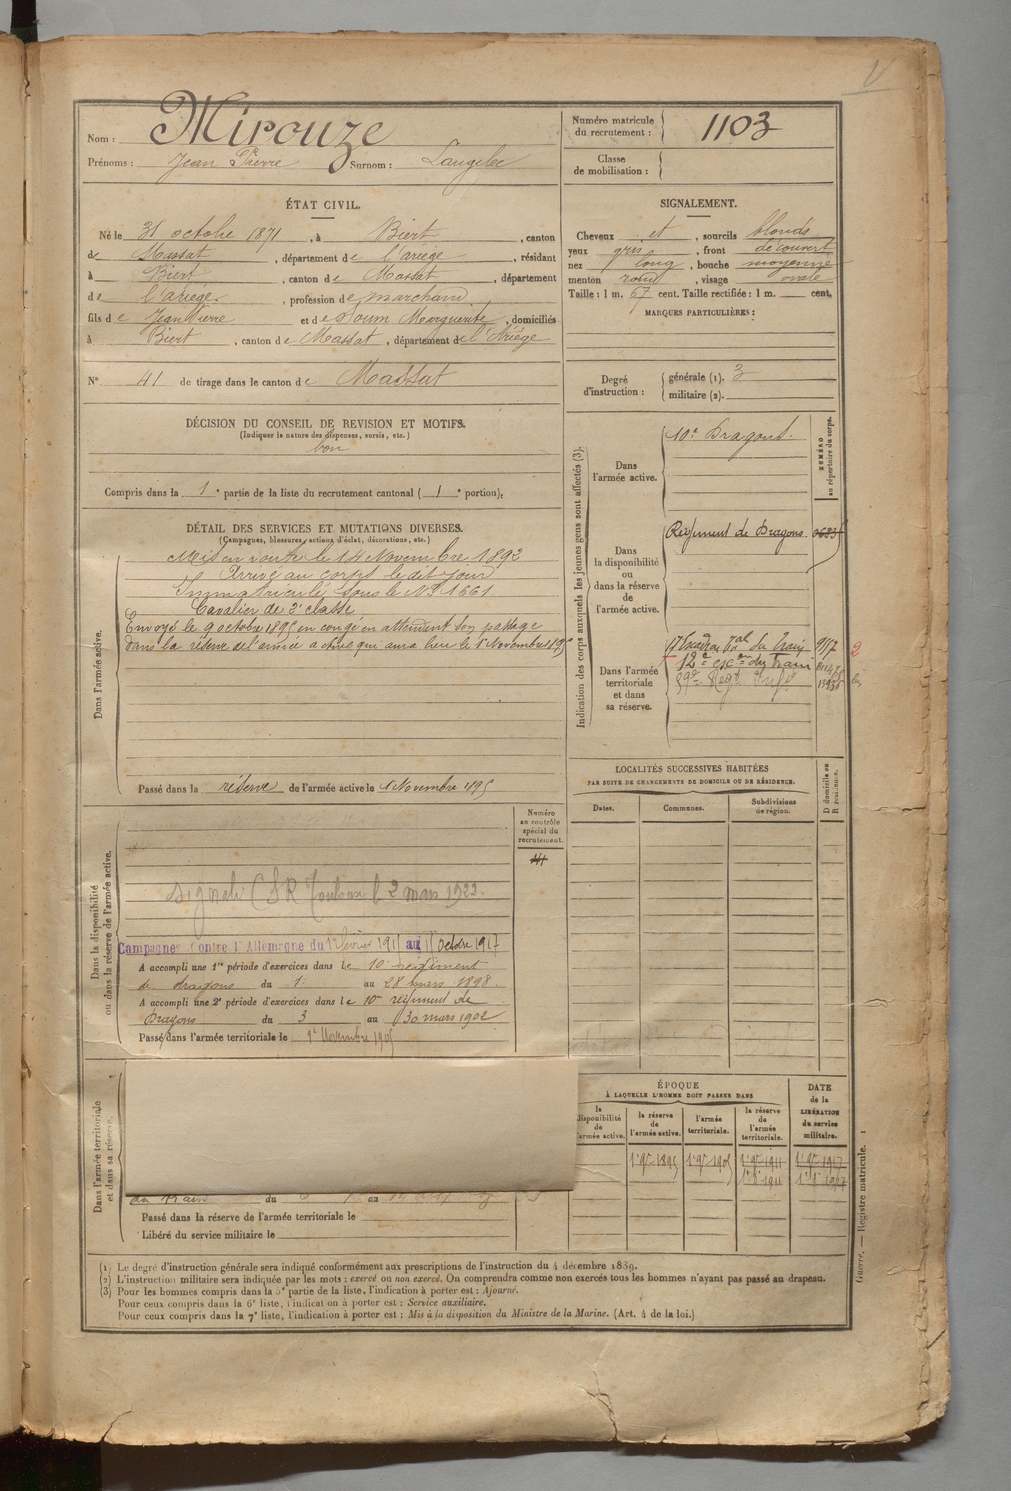 Nom : Mirouze
Prénoms : Jean Pierre Surnom : Laugelec
ÉTAT CIVIL.
Né le 31 octobre 1871, à Biert, canton
de Massat, département de l'ariege, résidant
à Biert, canton de Massat, département
de l'ariege, profession de marchand,
fils de Jean Pierre et de Soum Marguerite, domiciliés
à Biert, canton de Massat, département de l'Ariége
N° 41 de tirage dans le canton de Massat
DÉCISION DU CONSEIL DE REVISION ET MOTIFS.
(Indiquer la nature des dispenses, sursis, etc.)
bon
Compris dans la 1e partie de la liste du recrutement cantonal (1e portion).
DÉTAIL DES SERVICES ET MUTATIONS DIVERSES.
(Campagnes, blessures, actions d'éclat, décorations, etc.)
Dans l'armée active.
Mis en route le 14 Novembre 1892
Arrivé au corps le dit jour
Immatriculé sous le N° 1661
Cavalier de 2e classe
Envoyé le 9 octobre 1895 en congé en attendant son passage
dans la réserve de l'armée active qui aura lieu le 1er Novembre 1895
Passé dans la réserve de l'armée active le 1 Novembre 1895
Dans la disponibilité
ou dans la réserve de l'armée active.
Numéro
au contrôle
spécial du
recrutement.
signalé CSR Toulouse l 2 mars 1922.
Campagnes Contre l'Allemagne du 1er février 1915 au 11 octobre 1917
A accompli une 1re période d'exercices dans le 10e régiment
de dragons du 1er au 28 mars 1898.
A accompli une 2e période d'exercices dans le 10e régiment de
Dragons du 3 au 30 mars 1902
Passé dans l'armée territoriale le 1er Novembre 1905
Dans l'armée territoriale
et dans sa réserve.
du train du au
Passé dans la réserve de l'armée territoriale le
Libéré du service militaire le
Numéro matricule
du recrutement : 1103
Classe
de mobilisation :
SIGNALEMENT.
Cheveux et, sourcils blonds
yeux gris, front découvert
nez long, bouche moyenne
menton rond, visage ovale
Taille : 1 m. 67 cent. Taille rectifiée : 1 m. cent.
MARQUES PARTICULIÈRES :
Degré
d'instruction :
générale (1). 3
militaire (2).
Indication des corps auxquels les jeunes gens sont affectés (3).
NUMÉRO
au répertoire du corps.
Dans
l'armée active.
10e Dragons.
Dans
la disponibilité
ou
dans la réserve
de
l'armée active.
Régiment de Dragons
Dans l'armée
territoriale
et dans
sa réserve.
17 Escadron Tal du Train 9117 2
12e escon du Train
LOCALITÉS SUCCESSIVES HABITÉES
PAR SUITE DE CHANGEMENTS DE DOMICILE OU DE RÉSIDENCE.
Dates.
Communes.
Subdivisions
de région.
D domicile ou
R résidence.
ÉPOQUE
À LAQUELLE L'HOMME DOIT PASSER DANS
la
disponibilité
de
l'armée active.
la réserve
de
l'armée active.
l'armée
territoriale.
la réserve
de
l'armée
territoriale.
DATE
de la
LIBÉRATION
du service
militaire.
1er 9bre 1895 1er 9bre 1905 1er 9bre 1911 1er 9bre 1917
(1) Le degré d'instruction générale sera indiqué conformément aux prescriptions de l'instruction du 4 décembre 1889.
(2) L'instruction militaire sera indiquée par les mots : exercé ou non exercé. On comprendra comme non exercés tous les hommes n'ayant pas passé au drapeau.
(3) Pour les hommes compris dans la 5e partie de la liste, l'indication à porter est : Ajourné.
Pour ceux compris dans la 6e liste, l'indication à porter est : Service auxiliaire.
Pour ceux compris dans la 7e liste, l'indication à porter est : Mis à la disposition du Ministre de la Marine. (Art. 4 de la loi.)
Guerre. — Registre matricule. 1